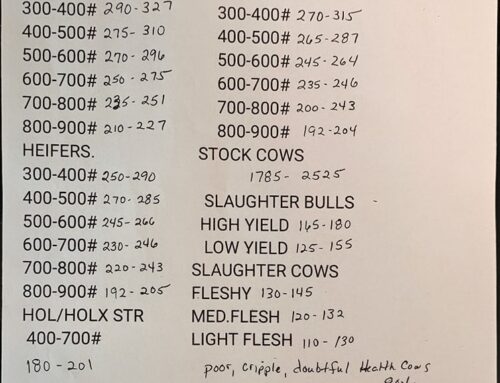 300-400# 290-327
400-500# 275-310
500-600# 270-296
600-700# 250-275
700-800# 235-251
800-900# 210-227
HEIFERS.
300-400# 250-290
400-500# 270-285
500-600# 245-266
600-700# 230-246
700-800# 220-243
800-900# 192-205
HOL/HOLX STR
400-700#
180-201
300-400# 270-315
400-500# 265-287
500-600# 245-264
600-700# 235-246
700-800# 200-243
800-900# 192-204
STOCK COWS
1785-2525
SLAUGHTER BULLS
HIGH YIELD 165-180
LOW YIELD 125-155
SLAUGHTER COWS
FLESHY 130-145
MED.FLESH 120-132
LIGHT FLESH 110-130
poor, cripple, doubtful Health Cows